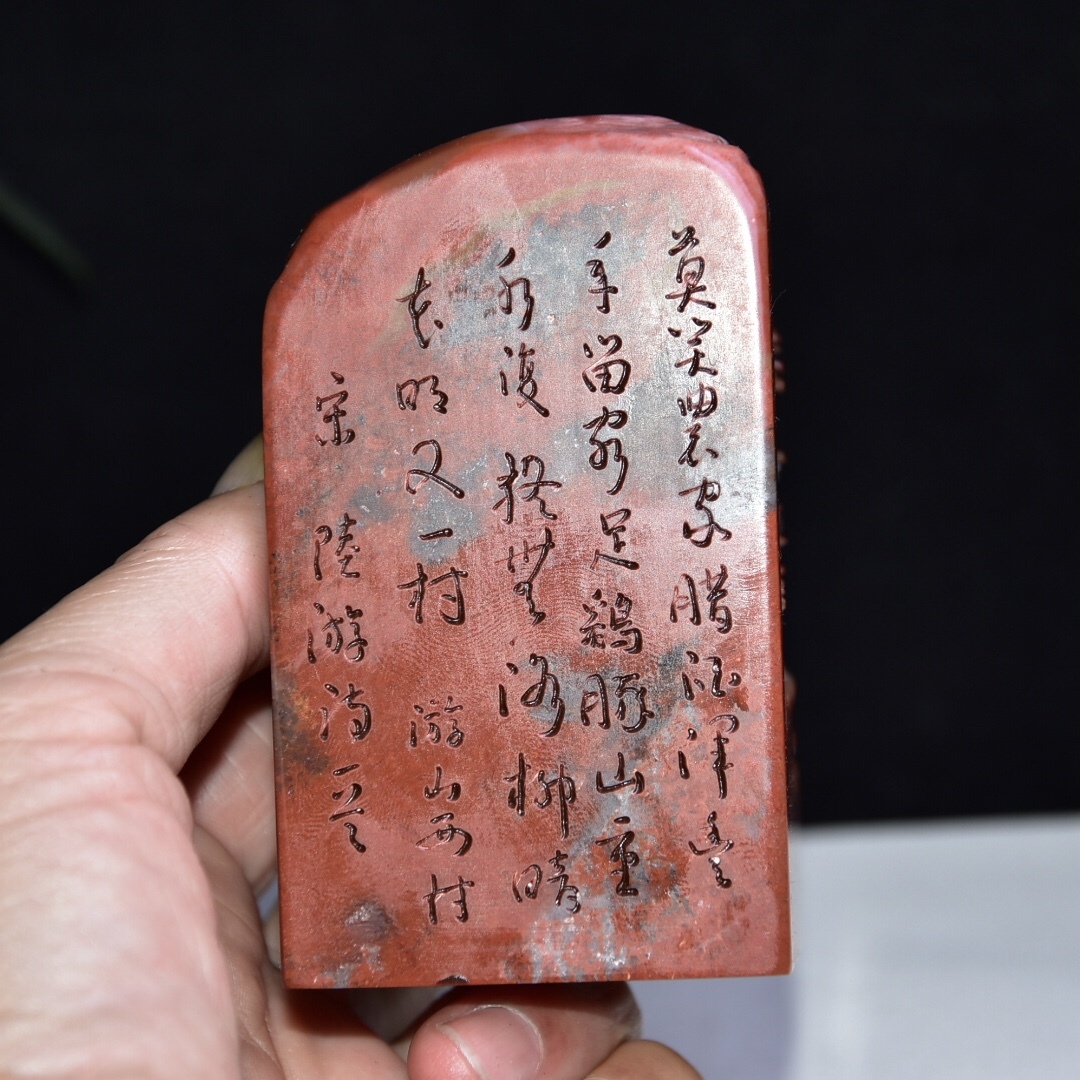 莫笑農家腊酒渾豐
年留客足鷄豚山重
水復疑無路柳暗
花明又一村 游山西村
宋 陸游詩一首